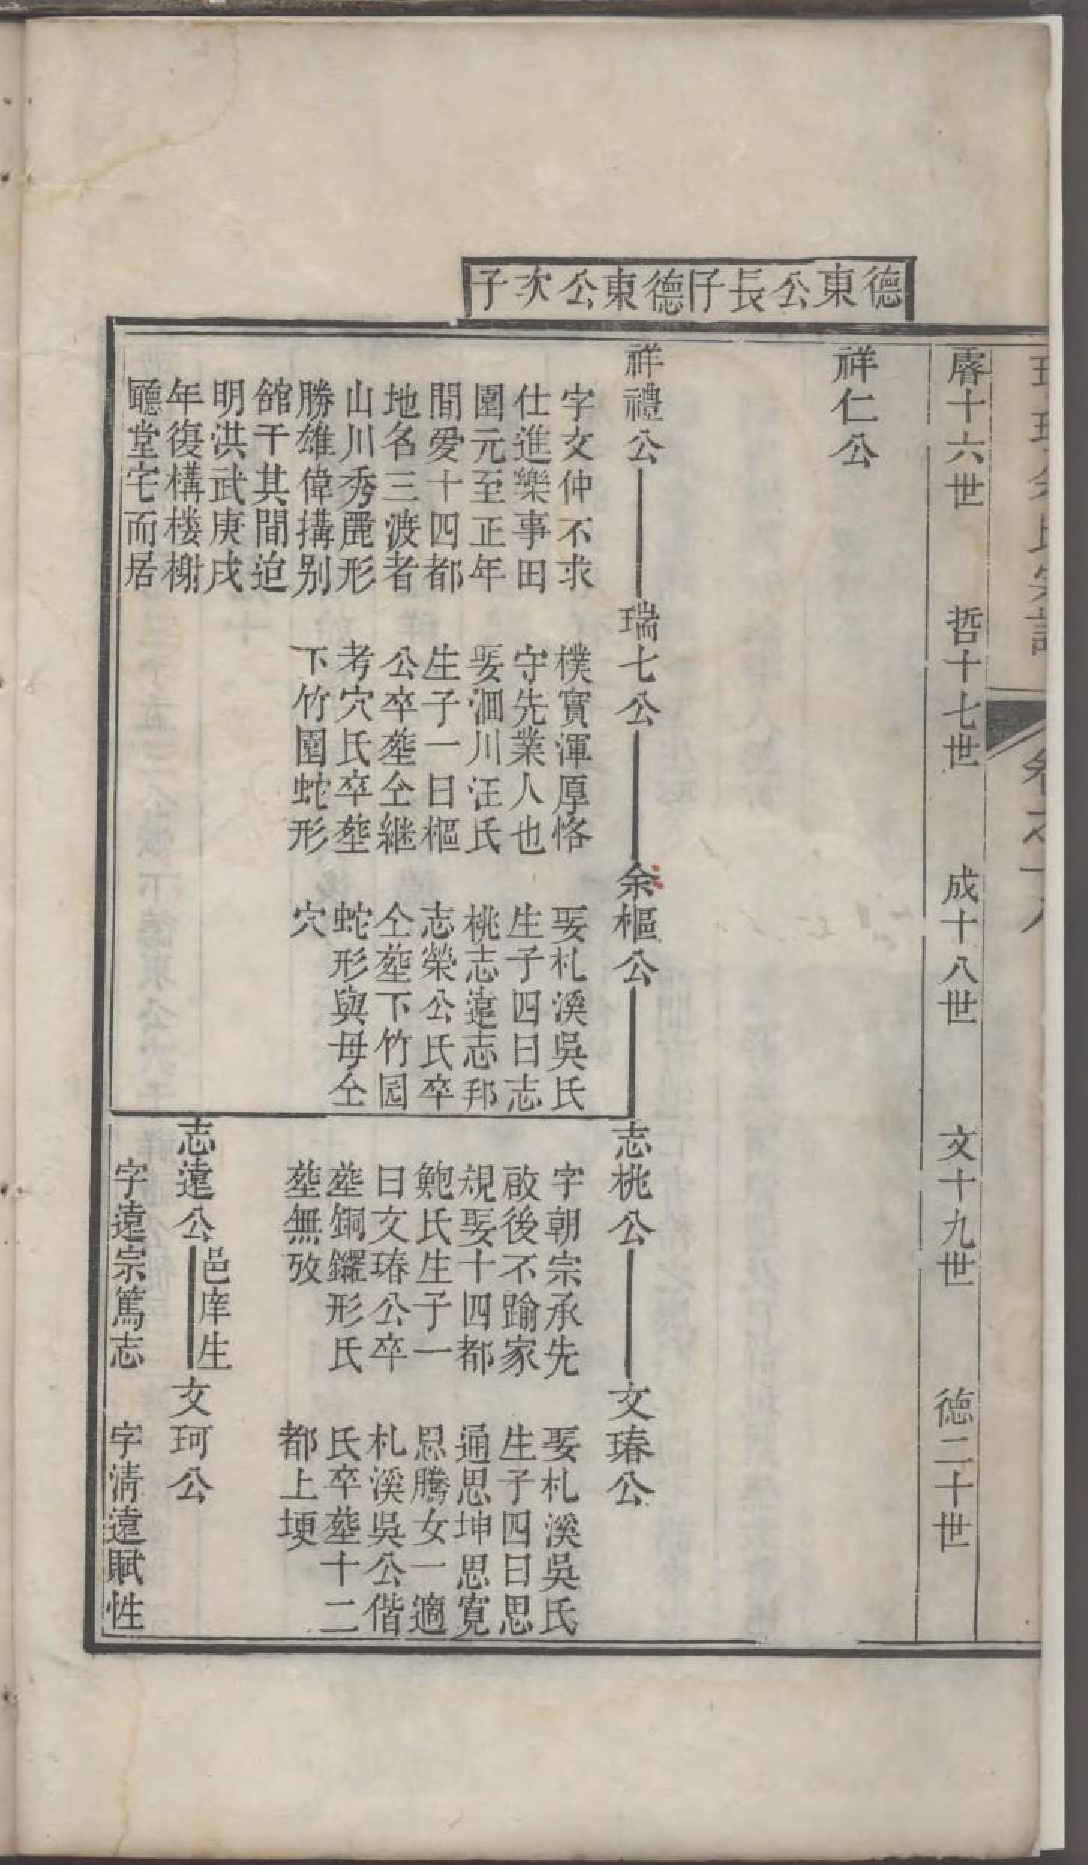 德東公長子
德東公次子
膺十六世
哲十七世
成十八世
文十九世
德二十世
祥仁公
祥禮公
字文仲不求
仕進樂事田
園元至正年
間愛十四都
地名三渡者
山川秀麗形
勝雄偉搆别
舘于其間迨
明洪武庚戌
年復構楼榭
廳堂宅而居
瑞七公
樸實渾厚恪
守先業人也
娶沺川汪氏
生子一曰樞
公卒塟仝継
考穴氏卒塟
下竹園蛇形
余樞公
娶札溪吳氏
生子四曰志
桃志遠志邦
志榮公氏卒
仝塟下竹园
蛇形與母仝
穴
志桃公
字朝宗承先
啟後不踰家
規娶十四都
鮑氏生子一
曰文瑃公卒
塟銅鑼形氏
塟無攷
文瑃公
娶札溪吳氏
生子四曰思
通思坤思寛
思騰女一適
札溪吳公偕
氏卒塟十二
都上埂
志遠公
邑庠生
字遠宗篤志
文珂公
字清遠賦性